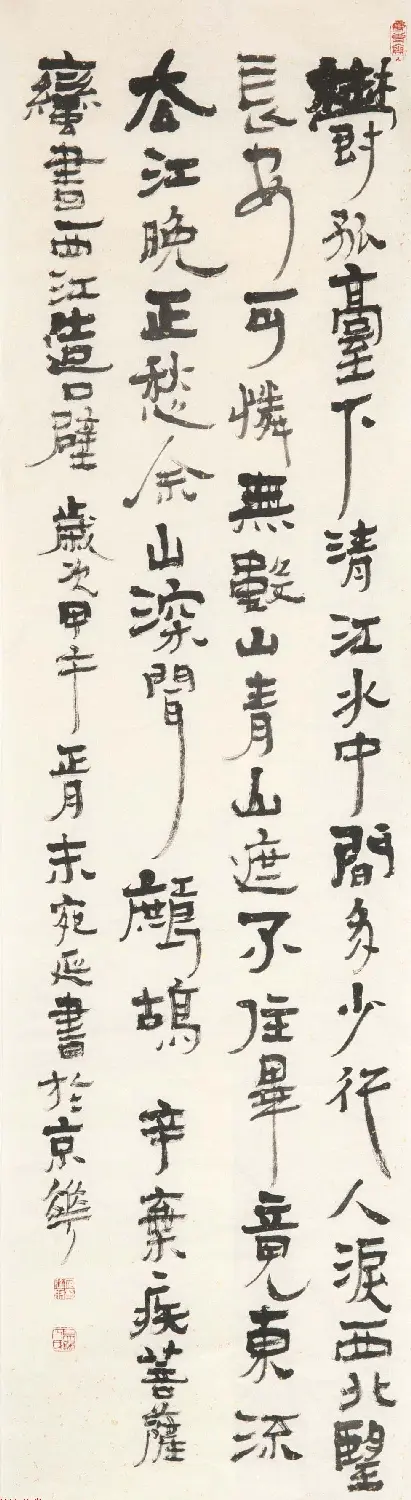 鬱孤臺下清江水中間多少行人淚西北望
長安可憐無數山青山遮不住畢竟東流
去江晚正愁余山深聞鷓鴣 辛棄疾菩薩
蠻書西江造口壁 歲次甲午正月末宛延書於京華